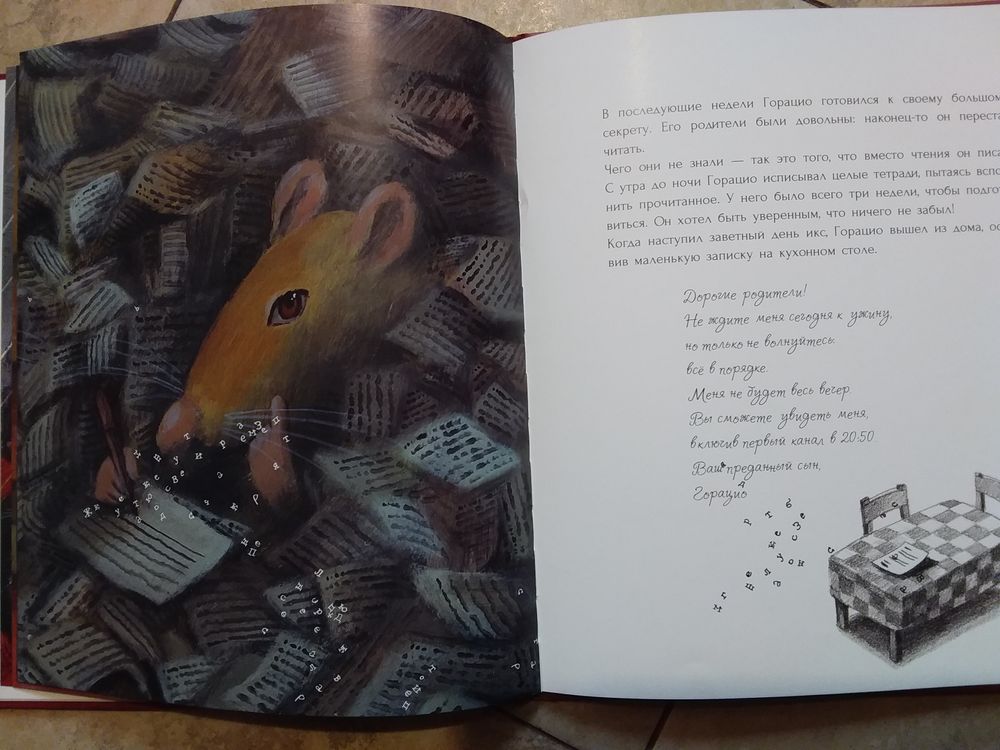 В последующие недели Горацио готовился к своему большом
секрету. Его родители были довольны: наконец-то он переста
читать.
Чего они не знали — так это того, что вместо чтения он писа
С утра до ночи Горацио исписывал целые тетради, пытаясь вспо
нить прочитанное. У него было всего три недели, чтобы подго
виться. Он хотел быть уверенным, что ничего не забыл!
Когда наступил заветный день икс, Горацио вышел из дома, ос
вив маленькую записку на кухонном столе.
Дорогие родители!
Не ждите меня сегодня к ужину,
но только не волнуйтесь:
всё в порядке.
Меня не будет весь вечер.
Вы сможете увидеть меня,
включив первый канал в 20:50
Ваш преданный сын,
Горацио